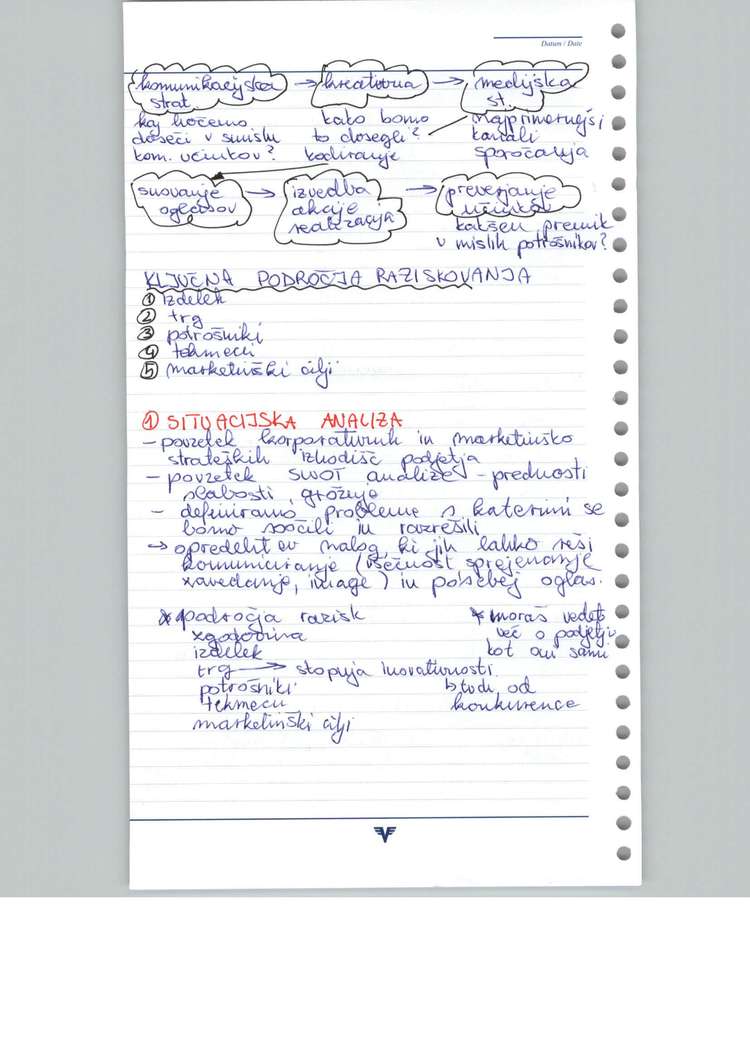 Datum / Date
komunikacijska → kreativna → medijska
strat. st.
kaj hočemo kako bomo najprimernejši
doseči v smislu to dosegli? kanali
kom. učinkov? kodiranje sporočanja
snovanje → izvedba → preverjanje
oglasov akcije učinkov
realizacija kakšen premik
v mislih potrošnikov?
KLJUČNA PODROČJA RAZISKOVANJA
① izdelek
② trg
③ potrošniki
④ tekmeci
⑤ marketinški cilji
① SITUACIJSKA ANALIZA
- povzetek korporativnih in marketinško
strateških izhodišč podjetja
- povzetek SWOT analize - prednosti
slabosti, grožnje
- definiramo probleme s katerimi se
bomo soočili in razrešili
→ opredelitev nalog, ki jih lahko reši
komuniciranje (všečnost, sprejemanje
zavedanje, image) in posebej oglas.
* področja razisk
zgodovina
izdelek
trg → stopnja inovativnosti
potrošniki
tekmeci
marketinški cilji
* moraš vedeti
več o podjetju
kot oni sami
↳ tudi od
konkurence